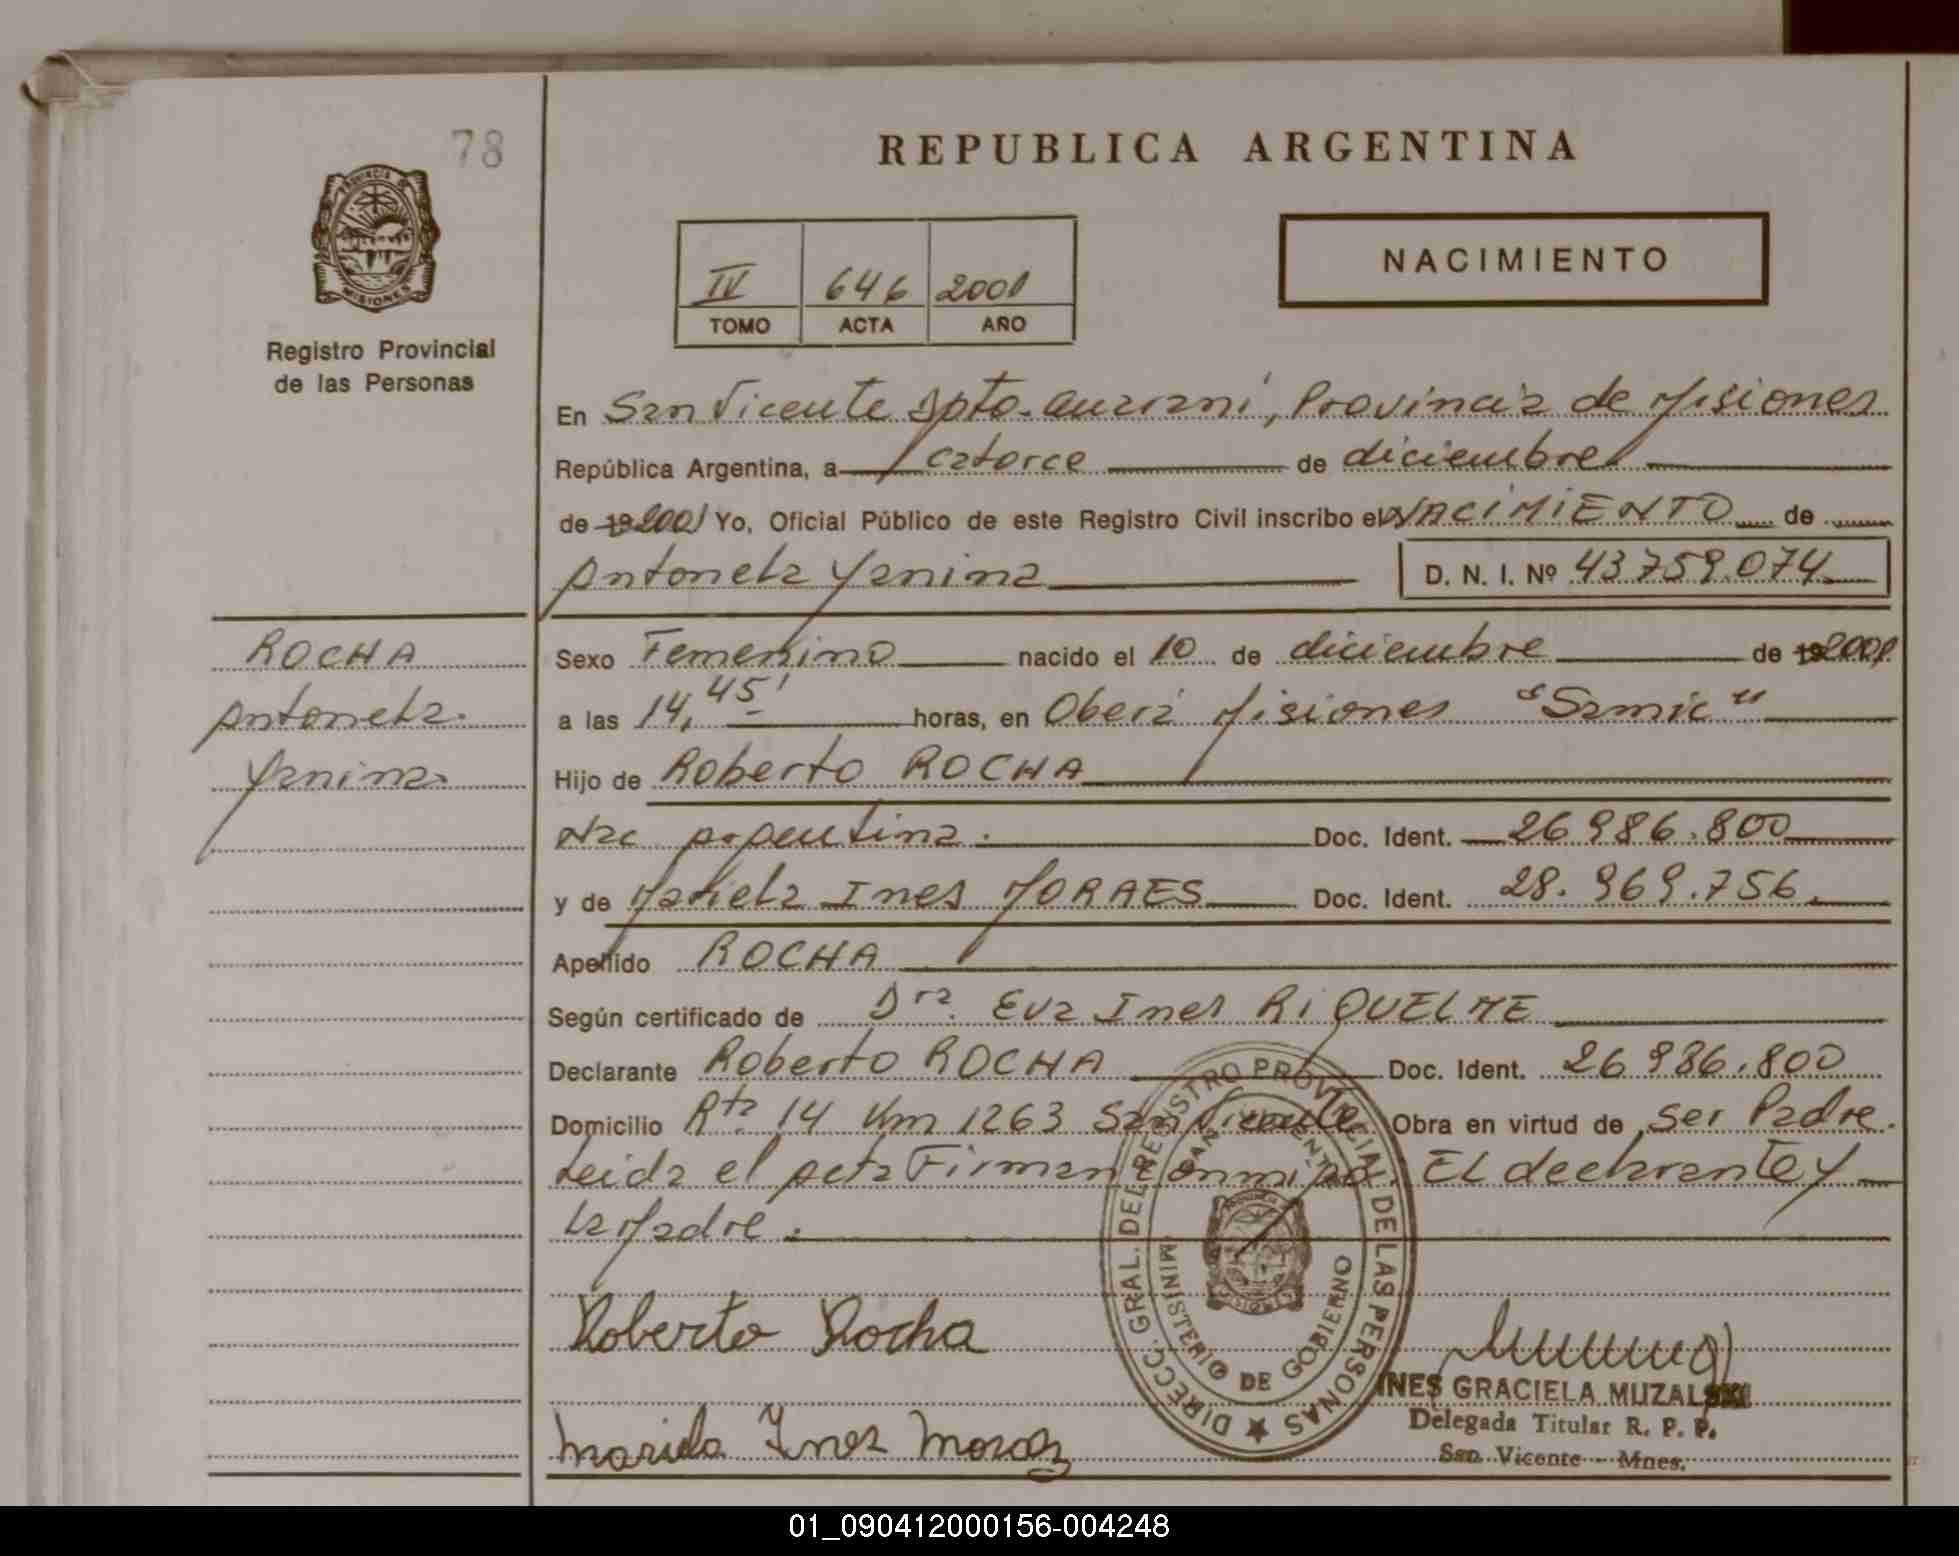 78
REPUBLICA ARGENTINA
PROVINCIA DE
MISIONES
IV 646 2001
TOMO ACTA AÑO
NACIMIENTO
Registro Provincial
de las Personas
En San Vicente Dpto. Guarani, Provincia de Misiones
República Argentina, a catorce de diciembre
de 19 2001 Yo, Oficial Público de este Registro Civil inscribo el NACIMIENTO de
Antonela Yanina D. N. I. Nº 43759.074
ROCHA
Antonela
Yanina
Sexo Femenino nacido el 10 de diciembre de 19 2001
a las 14,45' horas, en Oberá Misiones "Samic"
Hijo de Roberto ROCHA
Nac Argentina. Doc. Ident. 26986.800
y de Mariela Ines MORAES Doc. Ident. 28.969.756
Apellido ROCHA
Según certificado de Dra. Eva Ines RiQUELME
Declarante Roberto ROCHA Doc. Ident. 26986.800
Domicilio Rta 14 Km 1263 San Vicente Obra en virtud de ser Padre.
Leida el Acta Firman conmigo. El declarante y
La Madre.
DIRECC. GRAL. DEL REGISTRO PROVINCIAL DE LAS PERSONAS
SAN VICENTE
MINISTERIO DE GOBIERNO
Roberto Rocha
INES GRACIELA MUZALSKI
Delegada Titular R. P. P.
San Vicente - Mnes.
Mariela Ines Moraes
01_090412000156-004248